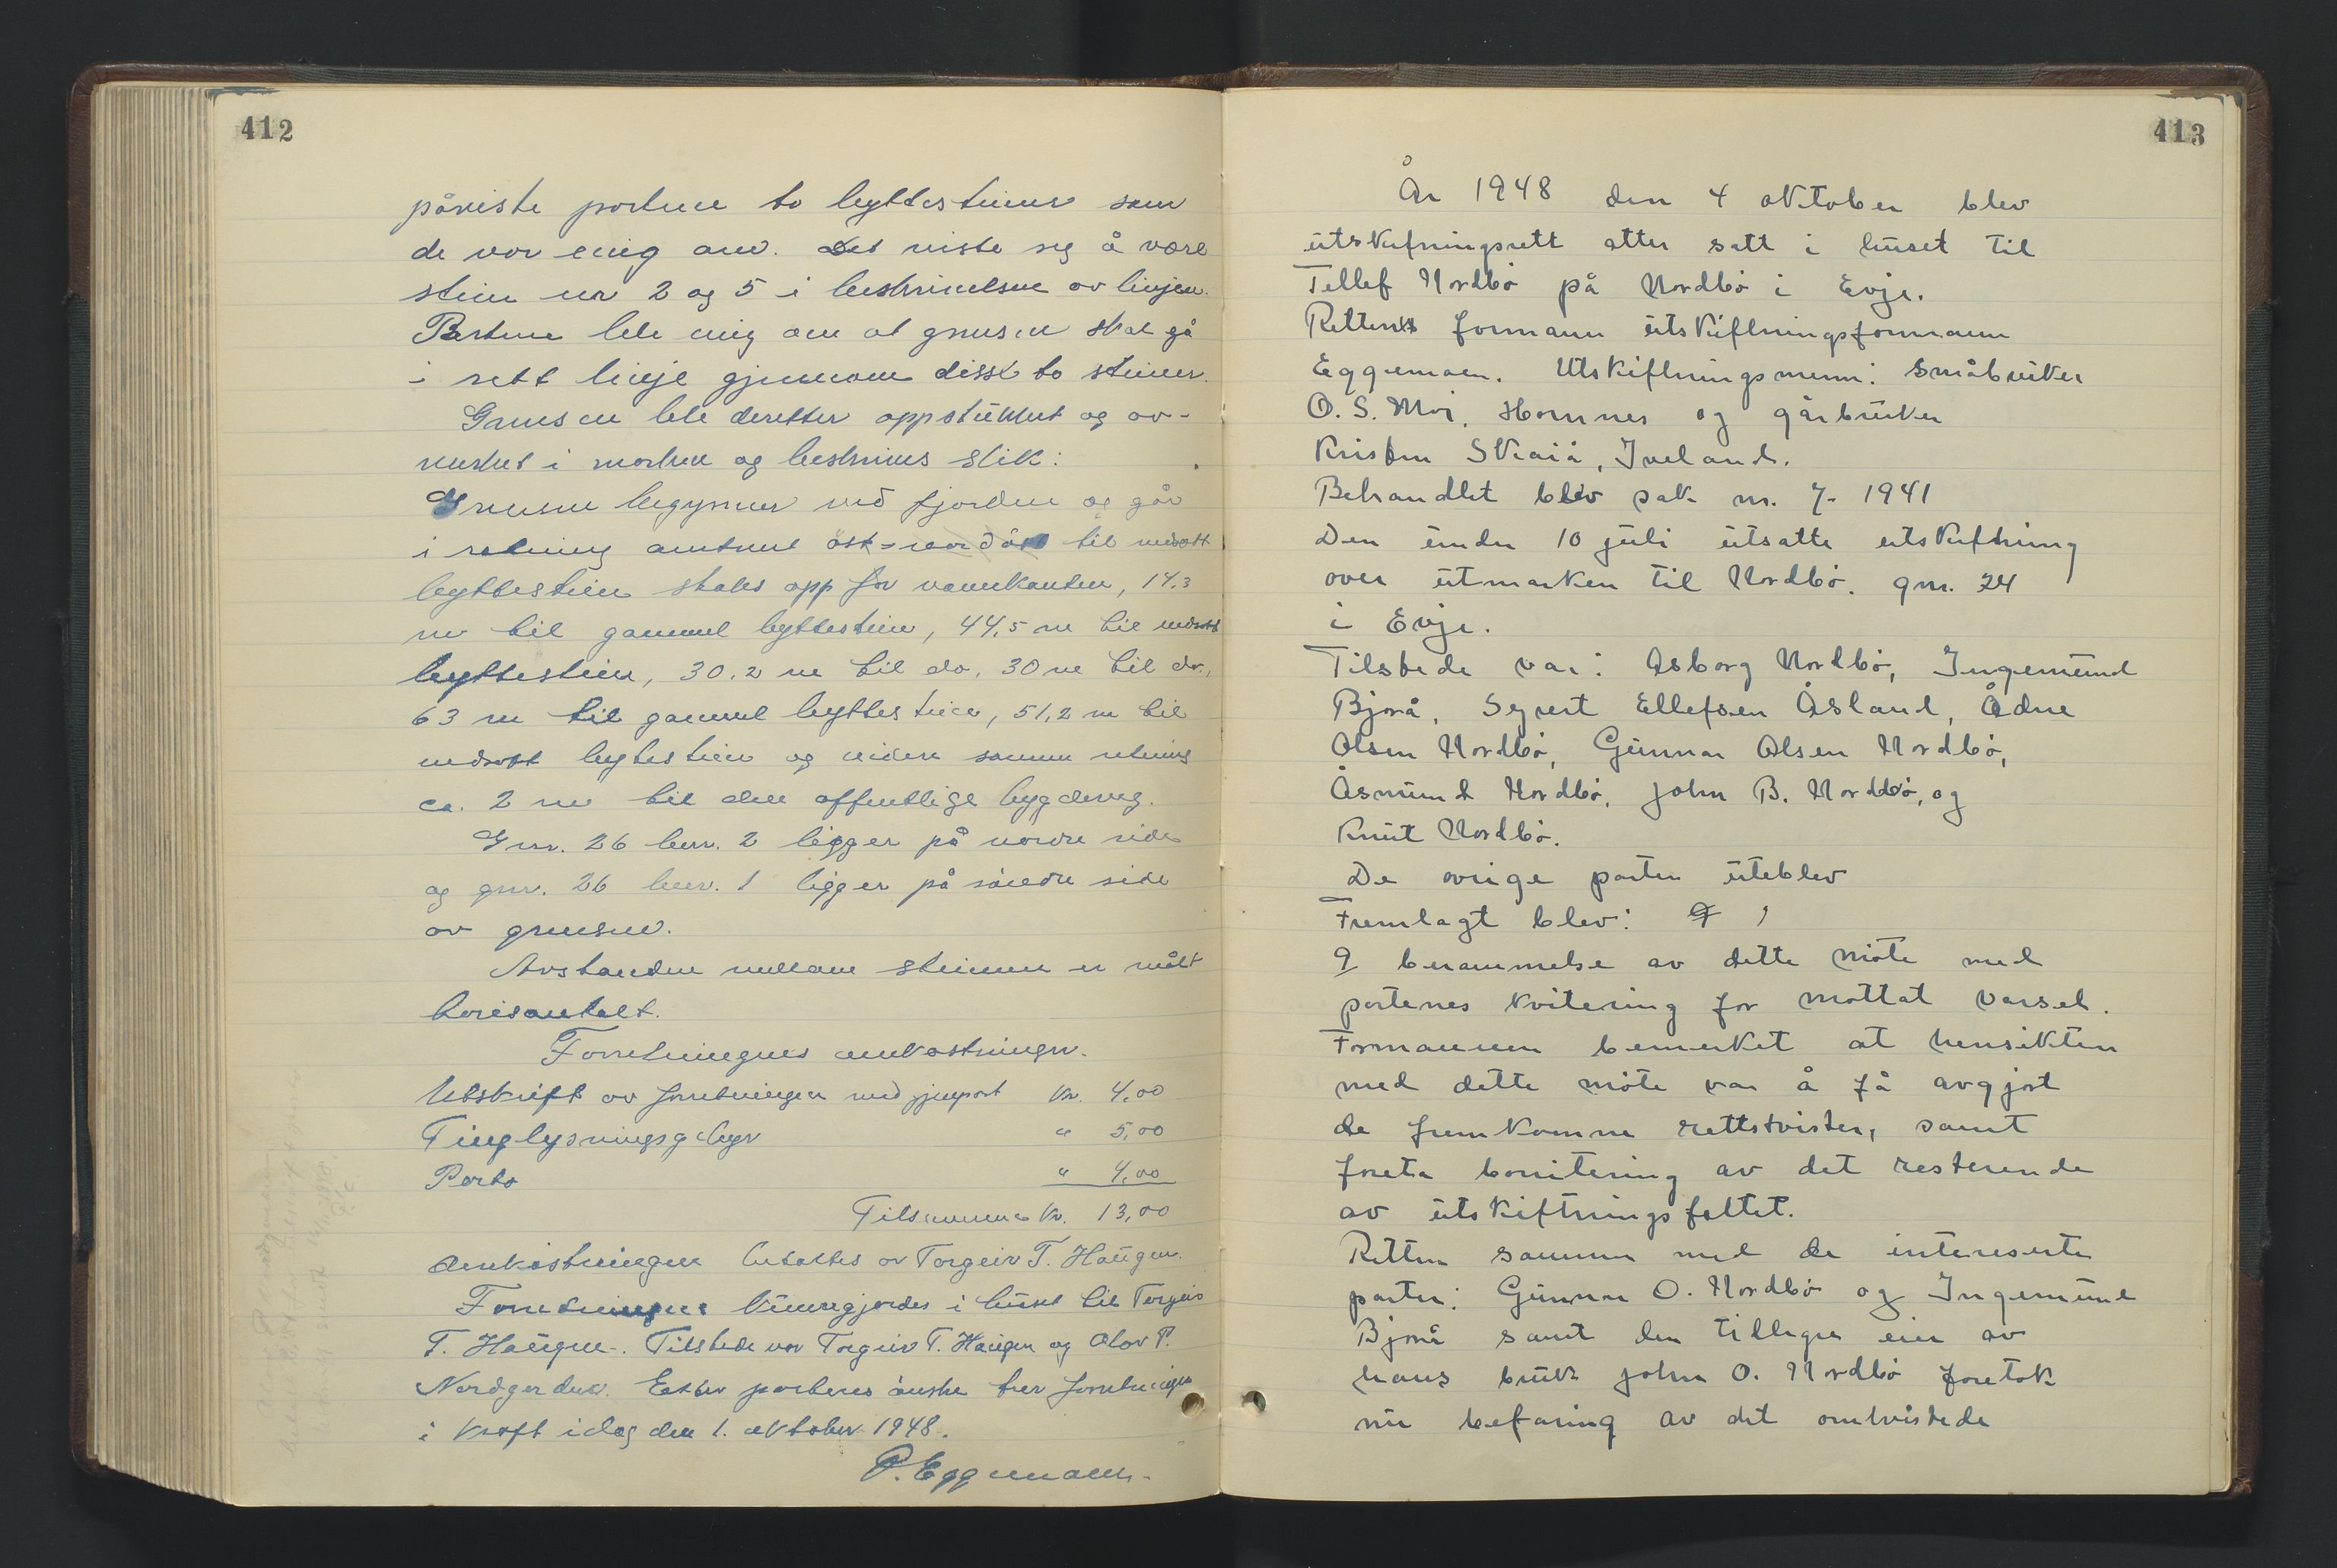 412
påviste partene to byttesteiner som
de var enig om. Det viste seg å være
stein nr 2 og 5 i beskrivelsen av linjen.
Partene ble enig om at grensen skal gå
i rett linje gjennom disse to steiner.
Grensen ble deretter oppstukket og av-
merket i marken og beskrives slik:
Grensen begynner ved fjorden og går
i retning omtrent øst-nordøst til nedsatt
byttestein straks opp for vannkanten, 14,3
m til gammel byttestein, 44,5 m til nedsatt
byttestein, 30,2 m til do, 30 m til do.,
63 m til gammel byttestein, 51,2 m til
nedsatt byttestein og videre samme retning
ca. 2 m til den offentlige bygdeveg.
Gnr. 26 bnr. 2 ligger på nordre side
og gnr. 26 bnr. 1 ligger på søndre side
av grensen.
Avstanden mellom steinene er målt
horisontalt.
Forretningens omkostninger.
Utskrift av forretningen med gjenpart kr. 4,00
Tinglysningsgebyr " 5,00
Porto " 4,00
Tilsammen kr. 13,00
Omkostningene betaltes av Torgeir T. Haugen.
Forretningen kunngjordes i huset til Torgeir
T. Haugen. Tilstede var Torgeir T. Haugen og Olav P.
Nordgarden. Etter partenes ønske trer forretningen
i kraft idag den 1. oktober 1948.
P. Eggemoen.
413
År 1948 den 4 oktober blev
utskiftningsrett atter satt i huset til
Tellef Nordbø på Nordbø i Evje.
Rettens formann utskiftningsformann
Eggemoen. Utskiftningsmenn: Småbruker
O. S. Moi, Hornnes og gårbruker
Kristen Skaiå, Iveland.
Behandlet blev sak nr. 7- 1941
Den under 10 juli utsatte utskiftning
over utmarken til Nordbø. gnr. 24
i Evje.
Tilstede var: Asborg Nordbø, Ingemund
Bjorå, Sejvert Ellefsen Åsland, Ådne
Olsen Nordbø, Gunnar Olsen Nordbø,
Åsmund Nordbø, John B. Nordbø, og
Knut Nordbø.
De øvrige parter uteblev
Fremlagt blev:
9 berammelse av dette møte med
partenes kvitering for mottat varsel.
Formannen bemerket at hensikten
med dette møte var å få avgjort
de fremkomne rettstvister, samt
foreta bonitering av det resterende
av utskiftningsfeltet.
Retten sammen med de interesserte
parter: Gunnar O. Nordbø og Ingemund
Bjorå samt den tidligere eier av
hans bruk John O. Nordbø foretok
nu befaring av det omtvistede